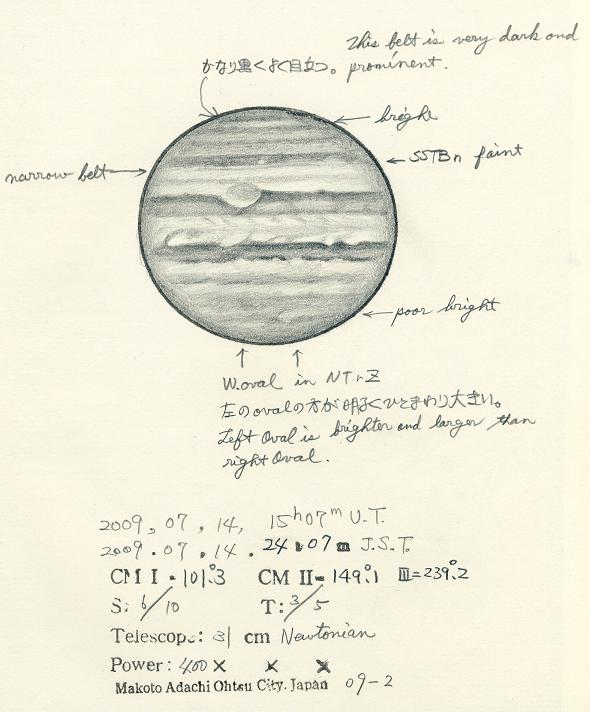 This belt is very dark and
prominent.
かなり黒くよく目立つ。
bright
SSTBn faint
narrow belt
poor bright
W.oval in NTrZ
左のovalの方が明るくひとまわり大きい。
Left Oval is brighter and larger than
right Oval.
2009, 07, 14, 15h07m U.T.
2009.07.14.24h07m J.S.T.
CM I = 101°.3 CM II = 149°.1 III=239°.2
S: 6/10 T: 3/5
Telescope: 31 cm Newtonian
Power: 400× × ×
Makoto Adachi Ohtsu City. Japan 09-2